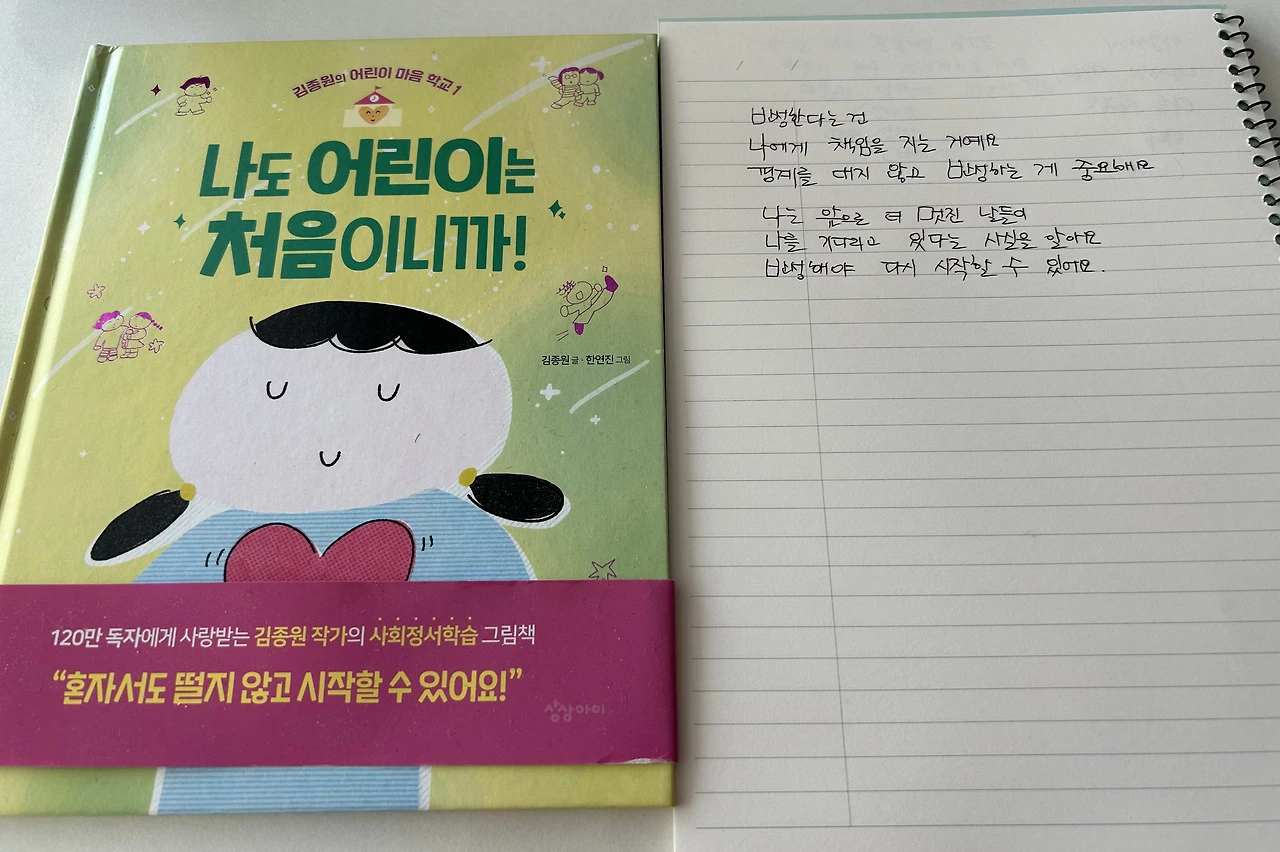 김종원의 어린이 마음 학교 1
나도 어린이는
처음이니까!
김종원 글 · 한연진 그림
120만 독자에게 사랑받는 김종원 작가의 사회정서학습 그림책
“혼자서도 떨지 않고 시작할 수 있어요!”
상상아이
반성한다는 건
나에게 책임을 지는 거예요
핑계를 대지 않고 반성하는 게 중요해요
나는 앞으로 더 멋진 날들이
나를 기다리고 있다는 사실을 알아요
반성해야 다시 시작할 수 있어요.